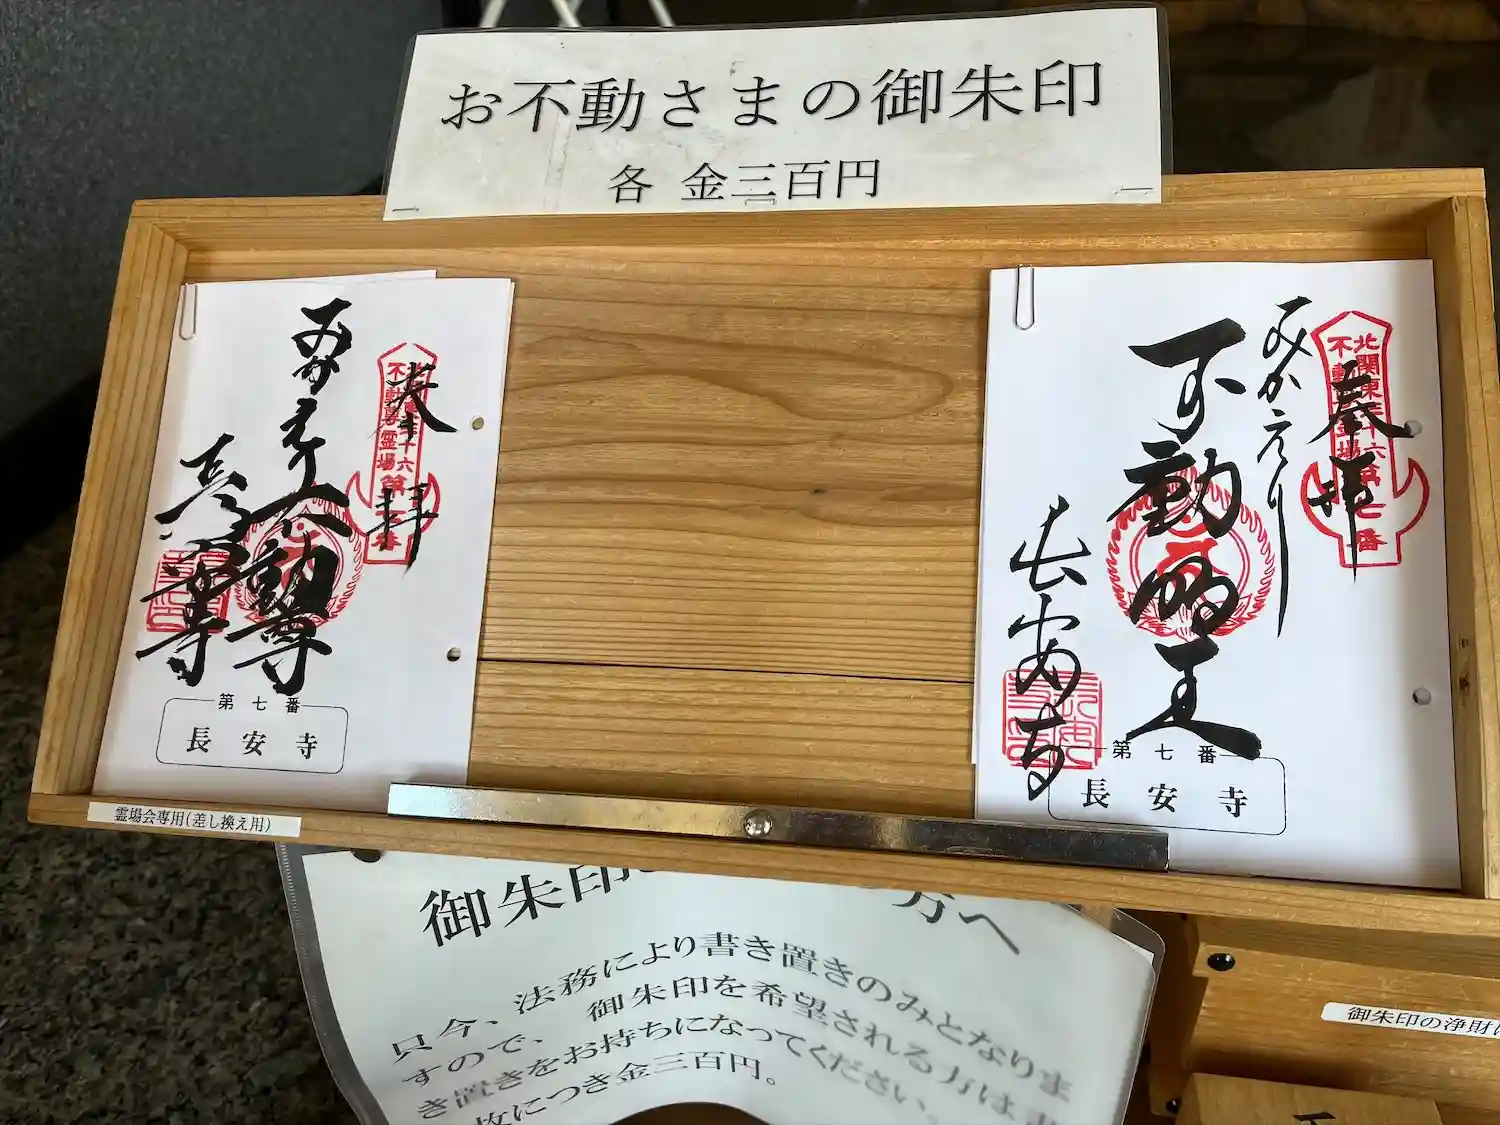 お不動さまの御朱印
各 金三百円
奉拝
北関東三十六
不動尊霊場
第七番
みかえり
不動尊
長安寺
第七番
長安寺
奉拝
北関東三十六
不動尊霊場
第七番
みかえり
不動明王
長安寺
第七番
長安寺
霊場会専用(差し換え用)
御朱印
方へ
只今、法務により書き置きのみとなりま
すので、御朱印を希望される方はお書
き置きをお持ちになってください。
枚につき金三百円。
御朱印の浄財